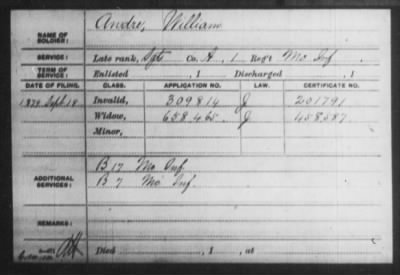 NAME OF SOLDIER: Andre, William
SERVICE: Late rank, Sgt Co. A, 1 Reg't Mo. Inf.
TERM OF SERVICE: Enlisted , 1 Discharged , 1
DATE OF FILING. CLASS. APPLICATION NO. LAW. CERTIFICATE NO.
1879 Sept. 18 Invalid, 309814 J 201791
Widow, 658465 J 458587
Minor,
ADDITIONAL SERVICES: B 17 Mo Inf
B 7 Mo Inf.
REMARKS:
Died , 1 , at